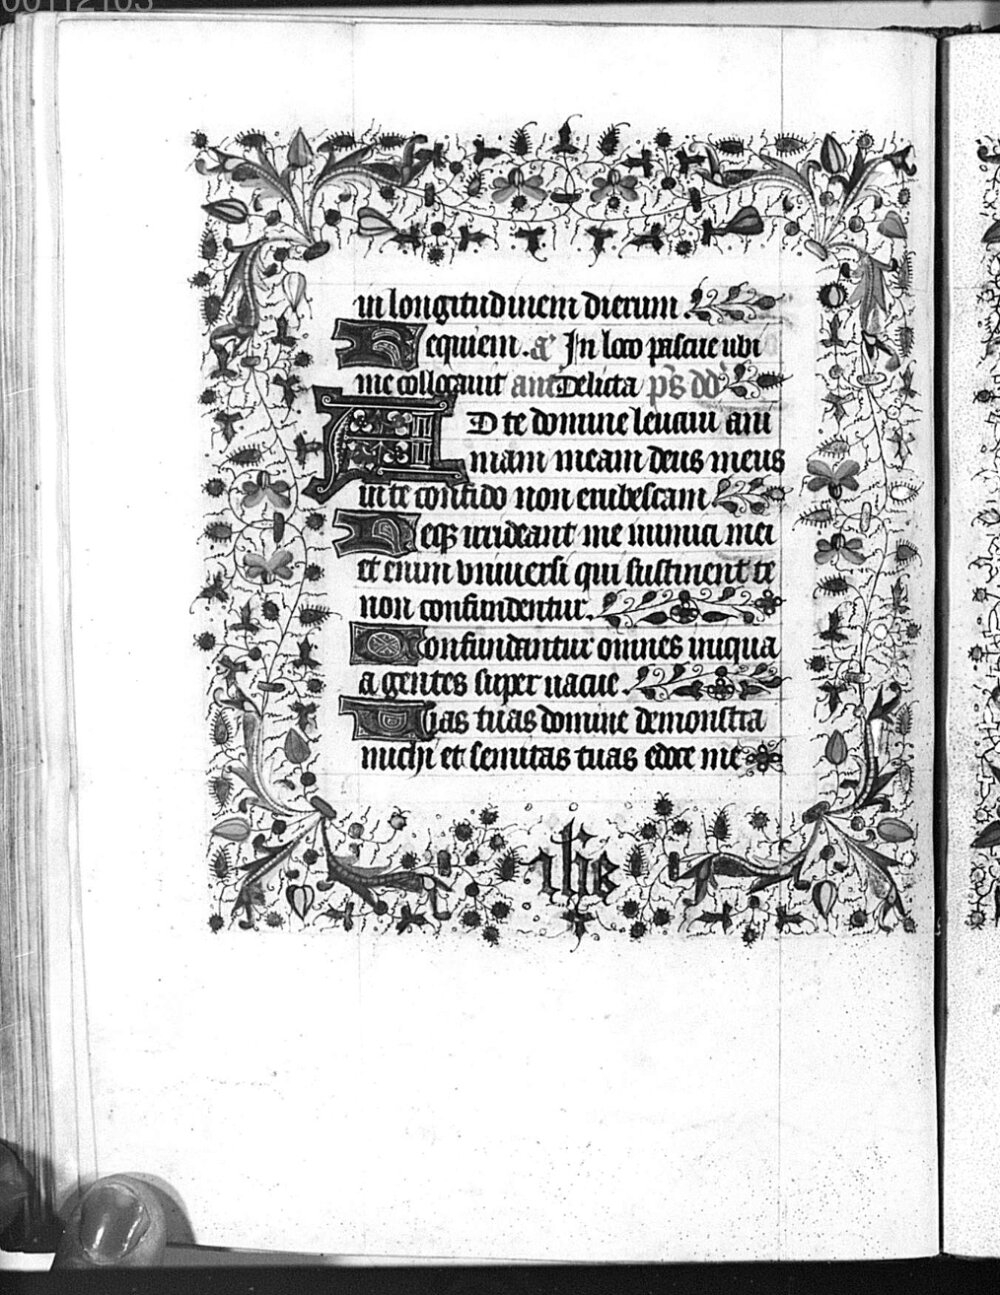 00112103
in longitudinem dierum.
Requiem. a' In loco pascue ubi
me collocauit ant Delicta ps dd'
AD te domine leuaui ani
mam meam deus meus
in te confido non erubescam.
Neqz irrideant me inimici mei
et enim vniuersi qui sustinent te
non confundentur.
Confundantur omnes iniqua
agentes super uacue.
Uias tuas domine demonstra
michi et semitas tuas edoce me